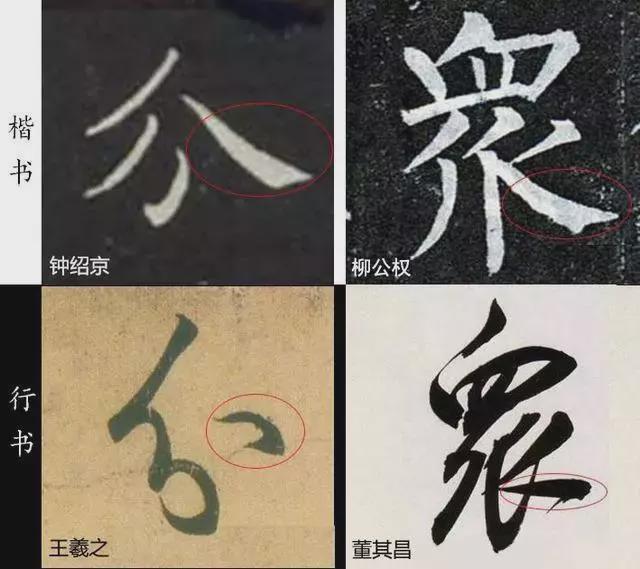 楷书
分
钟绍京
眾
柳公权
行书
分
王羲之
眾
董其昌